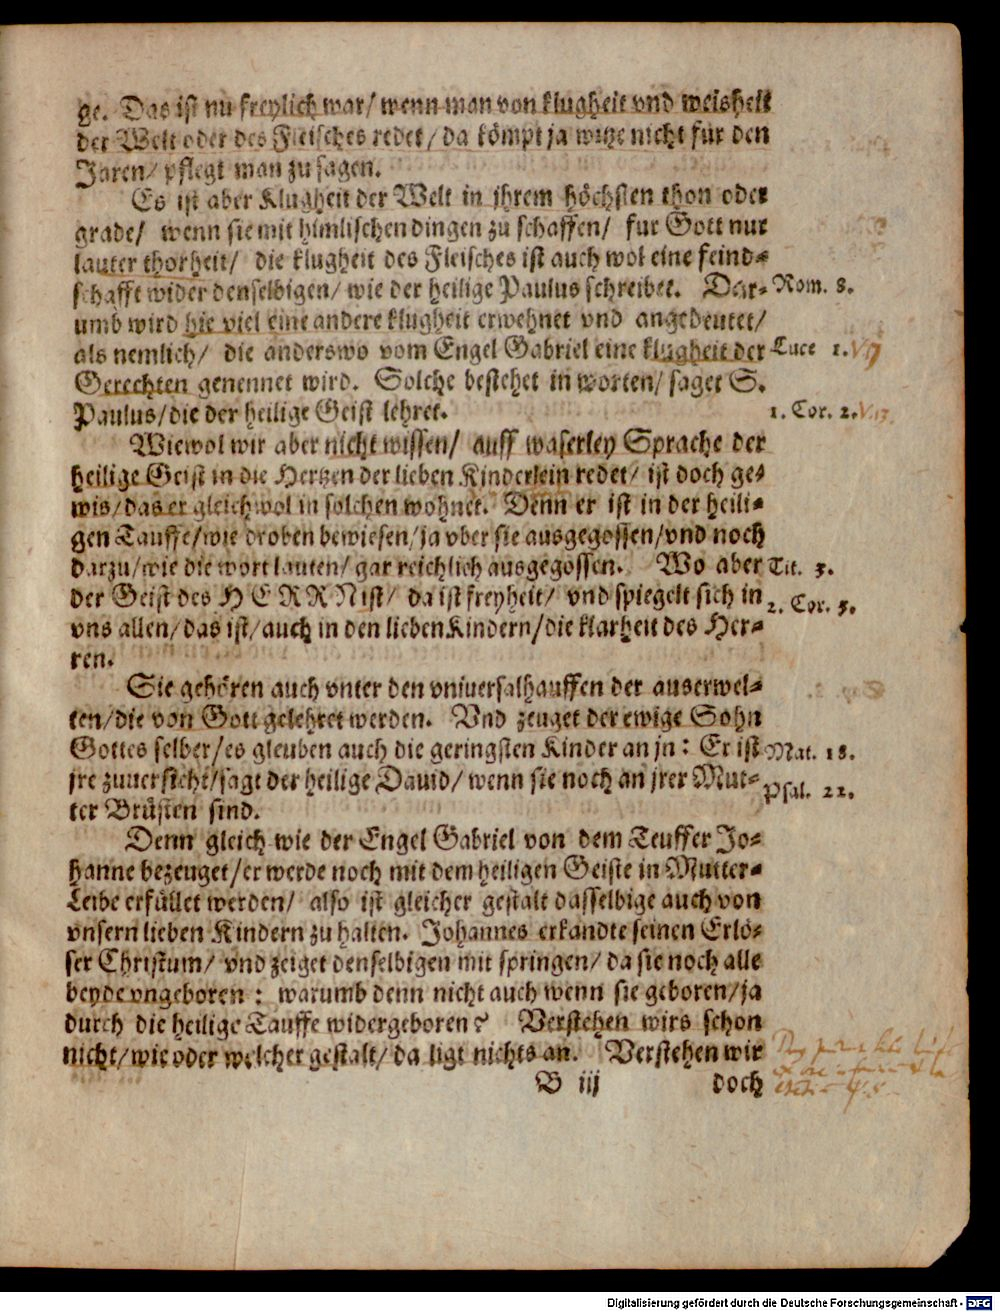 ge. Das ist nu freylich war/ wenn man von klugheit vnd weisheit
der Welt oder des Fleisches redet/ da kömpt ja witze nicht für den
Jaren/ pflegt man zu sagen.
Es ist aber Klugheit der Welt in ihrem höchsten thon oder
grade/ wenn sie mit himlischen dingen zu schaffen/ fur Gott nur
lauter thorheit/ die klugheit des Fleisches ist auch wol eine feind-
schafft wider denselbigen/ wie der heilige Paulus schreibet. Dar- Rom. 8.
umb wird hie viel eine andere klugheit erwehnet vnd angedeutet/
als nemlich/ die anderswo vom Engel Gabriel eine klugheit der Luce 1. V 17
Gerechten genennet wird. Solche bestehet in worten/ saget S.
Paulus/ die der heilige Geist lehret. 1. Cor. 2. V. 13.
Wiewol wir aber nicht wissen/ auff waserley Sprache der
heilige Geist in die Hertzen der lieben Kinderlein redet/ ist doch ge-
wis/ das er gleichwol in solchen wohnet. Denn er ist in der heili-
gen Tauffe/ wie droben bewiesen/ ja vber sie ausgegossen/ vnd noch
darzu/ wie die wort lauten/ gar reichlich ausgegossen. Wo aber Tit. 3.
der Geist des HERRN ist/ da ist freyheit/ vnd spiegelt sich in 2. Cor. 3.
vns allen/ das ist/ auch in den lieben Kindern/ die klarheit des Her-
ren.
Sie gehören auch vnter den vniuersalhauffen der auserwel-
ten/ die von Gott gelehret werden. Vnd zeuget der ewige Sohn
Gottes selber/ es gleuben auch die geringsten Kinder an jn: Er ist Mat. 18.
jre zuuersicht/ sagt der heilige Dauid/ wenn sie noch an jrer Mut- Psal. 22.
ter Brüsten sind.
Denn gleich wie der Engel Gabriel von dem Teuffer Jo-
hanne bezeuget/ er werde noch mit dem heiligen Geiste in Mutter-
Leibe erfüllet werden/ also ist gleicher gestalt dasselbige auch von
vnsern lieben Kindern zu halten. Johannes erkandte seinen Erlö-
ser Christum/ vnd zeiget denselbigen mit springen/ da sie noch alle
beyde vngeboren: warumb denn nicht auch wenn sie geboren/ ja
durch die heilige Tauffe widergeboren? Verstehen wirs schon
nicht/ wie oder welcher gestalt/ da ligt nichts an. Verstehen wir
B iij doch
Digitalisierung gefördert durch die Deutsche Forschungsgemeinschaft - DFG